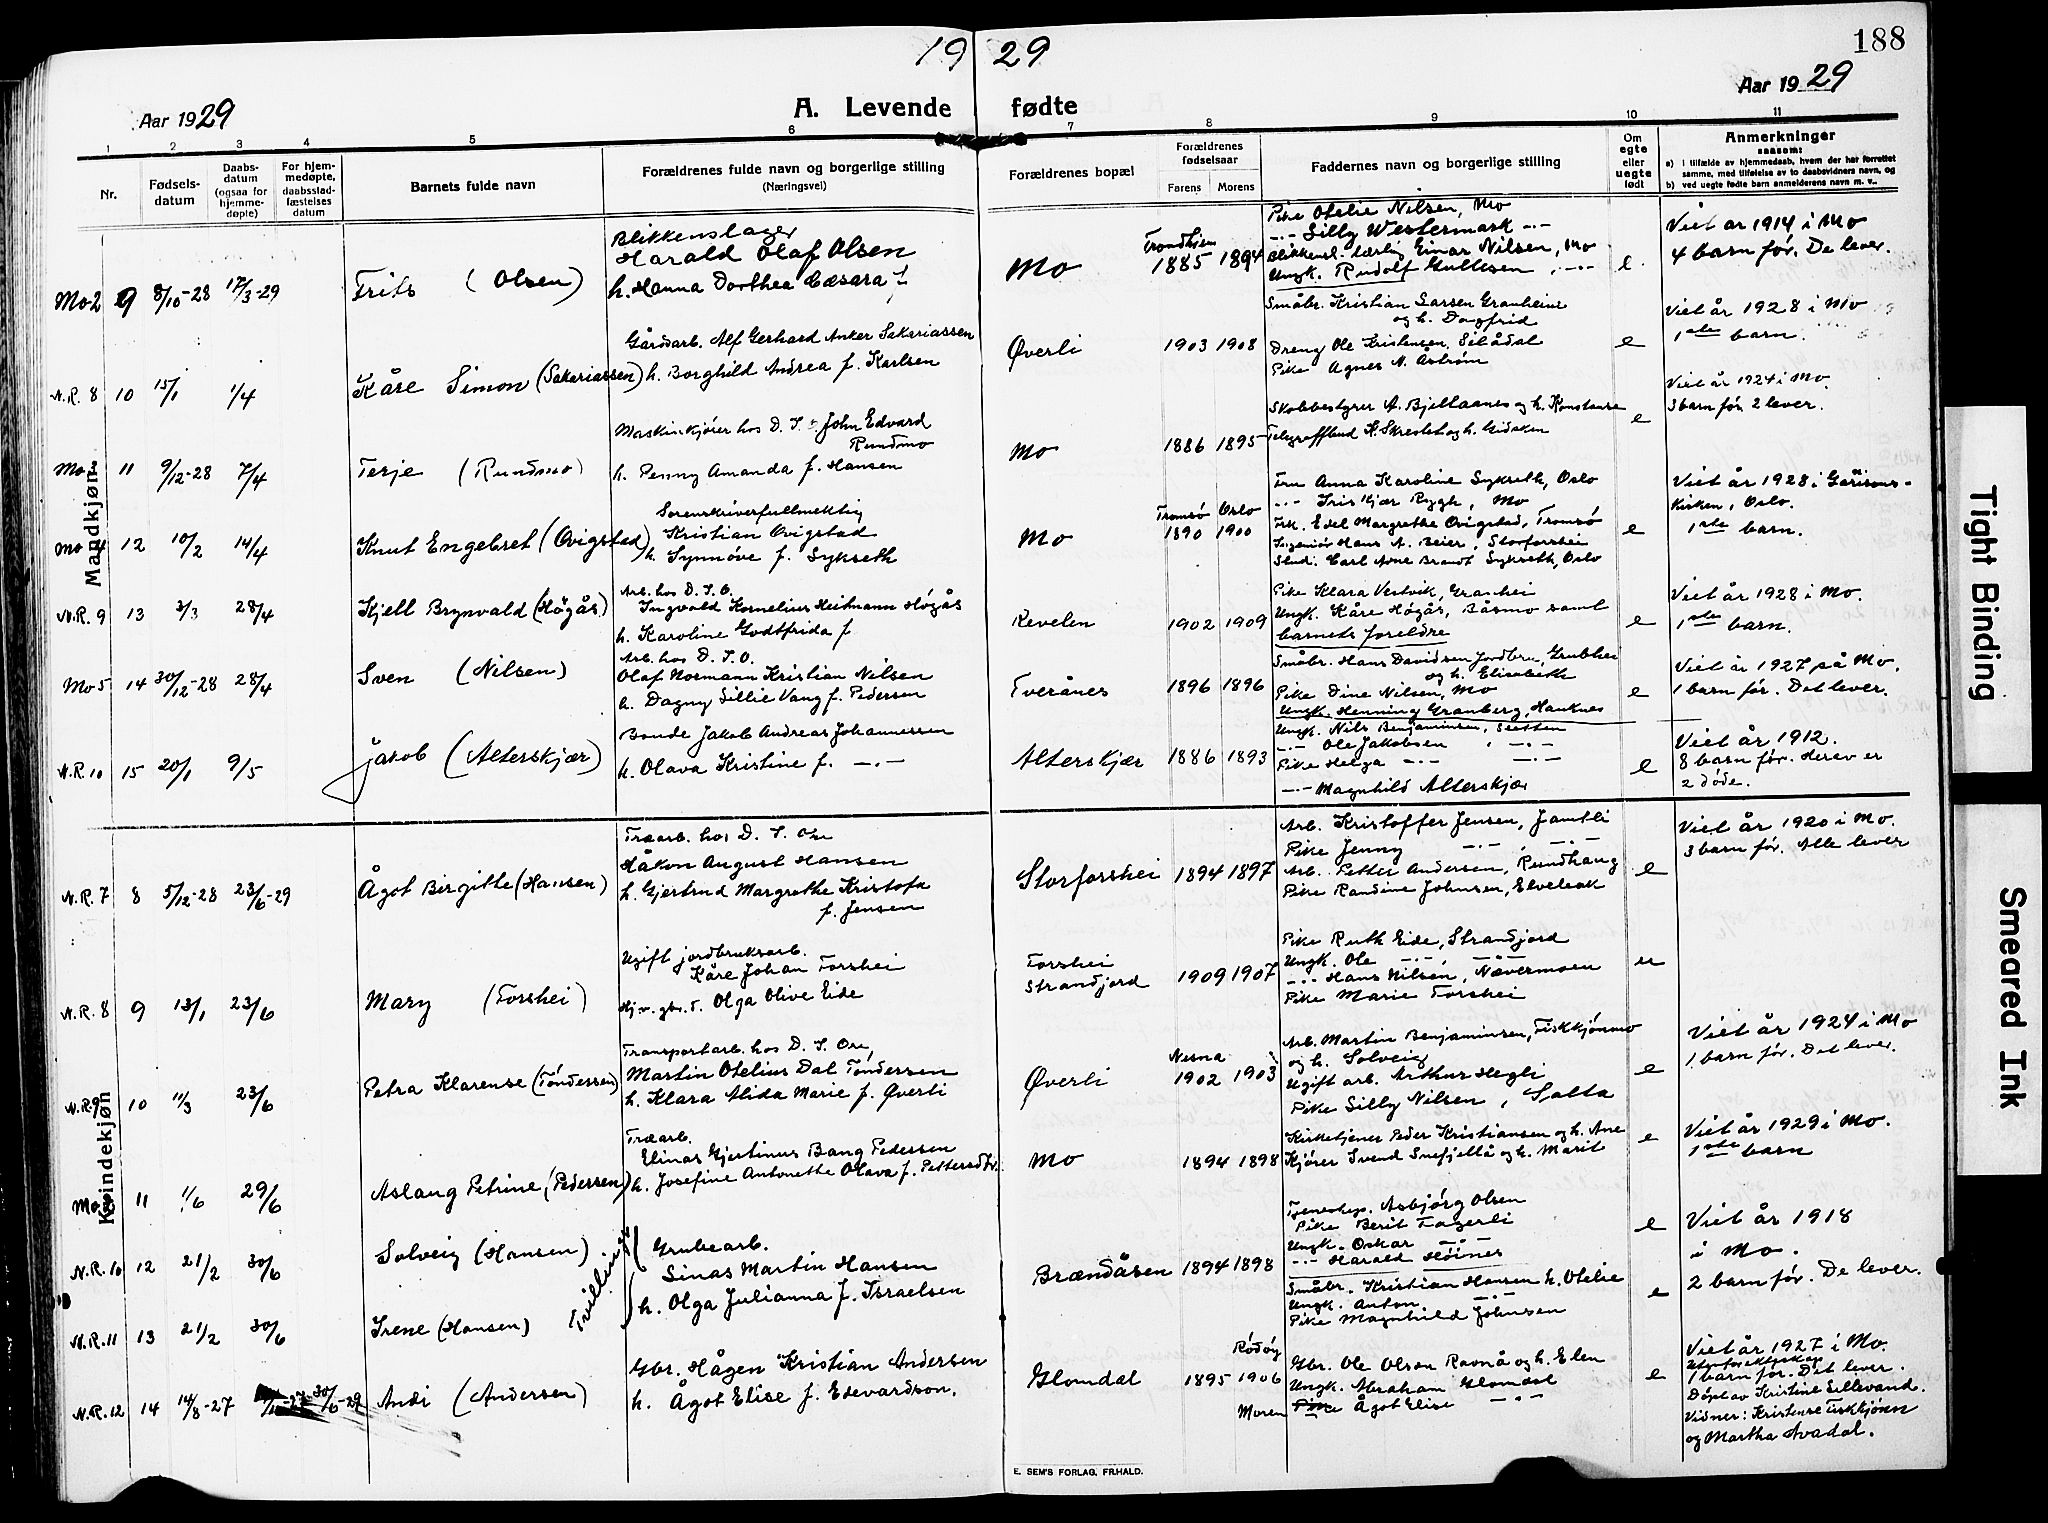 188
19 29
Aar 1929
A. Levende fødte
Aar 1929
1 2 3 4 5 6 7 8 9 10 11
Nr.
Fødsels-
datum
Daabs-
datum
(ogsaa for
hjemme-
døpte)
For hjem-
medøpte,
daabsstad-
fæstelses
datum
Barnets fulde navn
Forældrenes fulde navn og borgerlige stilling
(Næringsvei)
Forældrenes bopæl
Forældrenes
fødselsaar
Farens Morens
Faddernes navn og borgerlige stilling
Om
egte
eller
uegte
født
Anmerkninger
saasom:
a) i tilfælde av hjemmedaab, hvem der har forrettet
samme, med tilføielse av to daabsvidners navn, og
b) ved uegte fødte barn anmelderens navn m. v..
Mandkjøn
Mo 2 9 8/10-28 17/3-29 Frits (Olsen)
Blikkenslager
Harald Olaf Olsen
h. Hanna Dorthea Cæsara f.
Mo
Trondhjem
1885 1894
Pike Otelie Nilsen, Mo
-.- Silly Westermark -.-
Blikkensl. lærling Einar Nilsen, Mo
Ungk. Rudolf Gullesen, -.-
e
Viet år 1914 i Mo
4 barn før. De lever.
N.R. 8 10 15/1 1/4 Kåre Simon (Sakariassen)
Gårdarb. Alf Gerhard Anker Sakariassen
h. Borghild Andrea f. Karlsen
Øverli
1903 1908
Småbr. Kristian Larsen Granheim
og h. Dagfrid
Dreng Ole Kristensen, Selådal
Pike Agnes N. Åstrøm
e
Viet år 1928 i Mo
1ste barn.
Mo 11 9/12-28 7/4 Terje (Rundmo)
Maskinkjører hos D. I. John Edvard
Rundmo
h. Penny Amanda f. Hansen
Mo
1886 1895
Skobbestyrer A. Bjellaanes og h. Konstanse
e
Viet år 1924 i Mo.
3 barn før. 2 lever.
Mo 4 12 10/2 14/4 Knut Engebret (Qvigstad)
Sorenskriverfullmektig
Kristian Qvigstad
h. Synnøve f. Sykseth
Mo
Tromsø Oslo
1890 1900
Fru Anna Karoline Sykseth, Oslo
-.- Iris Kjær Rygh, Mo
Frk. Edel Margrethe Qvigstad, Tromsø
Ingeniør Hans A. Beier, Storforshei
Stud. Carl Arne Brandt Sykseth, Oslo
e
Viet år 1928 i Garisons-
kirken, Oslo.
1ste barn.
N.R. 9 13 3/3 28/4 Kjell Brynvald (Høgås)
Arb. hos D. I. O.
Ingvald Kornelius Heitmann Høgås
h. Karoline Godtfrida f.
Revelen
1902 1909
Pike Klara Vestvik, Granhei
Ungk. Kåre Høgås, Båsmo samt
barnets foreldre
e
Viet år 1928 i Mo.
1ste barn.
Mo 5 14 30/12-28 28/4 Sven (Nilsen)
Arb. hos D. I. O.
Olaf Normann Kristian Nilsen
h. Dagny Sillie Vang f. Pedersen
Tverånes
1896 1896
Småbr. Hans Davidsen Jordbru, Grubhei
og h. Elisabeth
Pike Dine Nilsen, Mo
Ungk. Henning Granberg, Hauknes
e
Viet år 1927 på Mo.
1 barn før. Det lever.
N.R. 10 15 20/1 9/5 Jakob (Alterskjær)
Bonde Jakob Andreas Johannessen
h. Olava Kristine f. -.-
Alterskjær
1886 1893
Ungk. Nils Benjaminsen, Sletten
-.- Ole Jakobsen, -.-
Pike Helga -.- -.-
-.- Magnhild Alterskjær
e
Viet år 1912.
8 barn før. Herav er
2 døde.
Kvindekjøn
N.R. 7 8 5/12-28 23/6-29 Ågot Birgitte (Hansen)
Træarb. hos D. I. Ore
Håkon August Hansen
h. Gjertrud Margrethe Kristofa
f. Jensen
Storforshei
1894 1897
Arb. Kristoffer Jensen, Jamtli
Pike Jenny -.- -.-
Arb. Petter Andersen, Rundhaug
Pike Randine Johnsen, Elveleak
e
Viet år 1920 i Mo.
3 barn før. Alle lever
N.R. 8 9 13/1 23/6 Mary (Forshei)
Ugift jordbruksarb.
Kåre Johan Forshei
Olga Olive Eide
Forshei
Strandjord
1909 1907
Pike Ruth Eide, Strandjord
Ungk. Ole -.- -.-
-.- Hans Nilsen, Nævermoen
Pike Marie Forshei
u
N.R. 9 10 11/3 23/6 Petra Klarense (Tøndessen)
Transportarb. hos D. I. Ore,
Martin Otelius Dal Tøndessen
h. Klara Alida Marie f. Øverli
Øverli
Nesna
1902 1903
Arb. Martin Benjaminsen, Fiskkjønmo
og h. Solveig
Ugift arb. Arthur Hegli
Pike Silly Nilsen, Salta
e
Viet år 1924 i Mo
1 barn før. Det lever.
Mo 11 1/6 29/6 Aslaug Petrine (Pedersen)
Træarb.
Elinas Gjertinus Bang Pedersen
h. Josefine Antonette Olava f.
Mo
1894 1898
Kirketjener Peder Kristiansen og h. Ane
Kjører Svend Snefjellå og h. Marit
e
Viet år 1929 i Mo.
1ste barn
N.R. 10 12 21/2 30/6 Solveig (Hansen)
Tvillinger
Grubearb.
Linas Martin Hansen
h. Olga Julianna f. Israelsen
Brændåsen
1894 1898
Tjeneshep. Asbjørg Olsen
Pike Berit Fagerli
Ungk. Oskar -.-
-.- Harald Høines
e
Viet år 1918
i Mo.
2 barn før. De lever.
N.R. 11 13 21/2 30/6 Irene (Hansen)
Småbr. Kristian Hansen h. Otelie
Ungk. Anton -.-
Pike Magnhild Johnsen
e
N.R. 12 14 14/8-27 30/6-29 Andi (Andersen)
Gbr. Hågen Kristian Andersen
h. Ågot Elise f. Edevardson.
Glomdal
Rødøy
1895 1906
Moren
Gbr. Ole Olsen Ravnå og h. Elen
Ungk. Abraham Glomdal
Pike Ågot Elise -.-
e
Viet år 1927 i Mo.
1 barn før. Det lever.
Døpt av Kristine Lillevand.
Vidner: Kristense Fiskkjønn
og Martha Avadal.
E. SEM'S FORLAG, FR.HALD.
Tight Binding
Smeared Ink